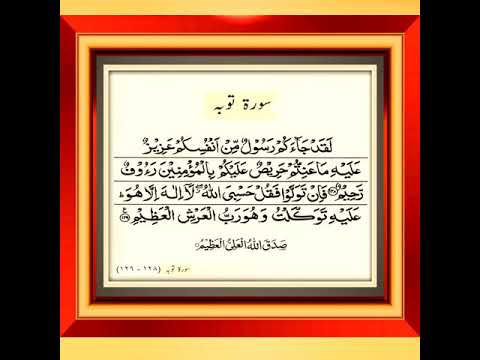 سورۃ توبہ
لَقَدْ جَآءَكُمْ رَسُوْلٌ مِّنْ اَنْفُسِكُمْ عَزِيْزٌ
عَلَيْهِ مَا عَنِتُّمْ حَرِيْصٌ عَلَيْكُمْ بِالْمُؤْمِنِيْنَ رَءُوْفٌ
رَّحِيْمٌ ﴿۱۲۸﴾ فَاِنْ تَوَلَّوْا فَقُلْ حَسْبِيَ اللّٰهُ لَآ اِلٰهَ اِلَّا هُوَ
عَلَيْهِ تَوَكَّلْتُ وَهُوَ رَبُّ الْعَرْشِ الْعَظِيْمِ ﴿۱۲۹﴾
صَدَقَ اللّٰهُ الْعَلِیُّ الْعَظِیْمُ
سورۃ توبہ (۱۲۸ - ۱۲۹)